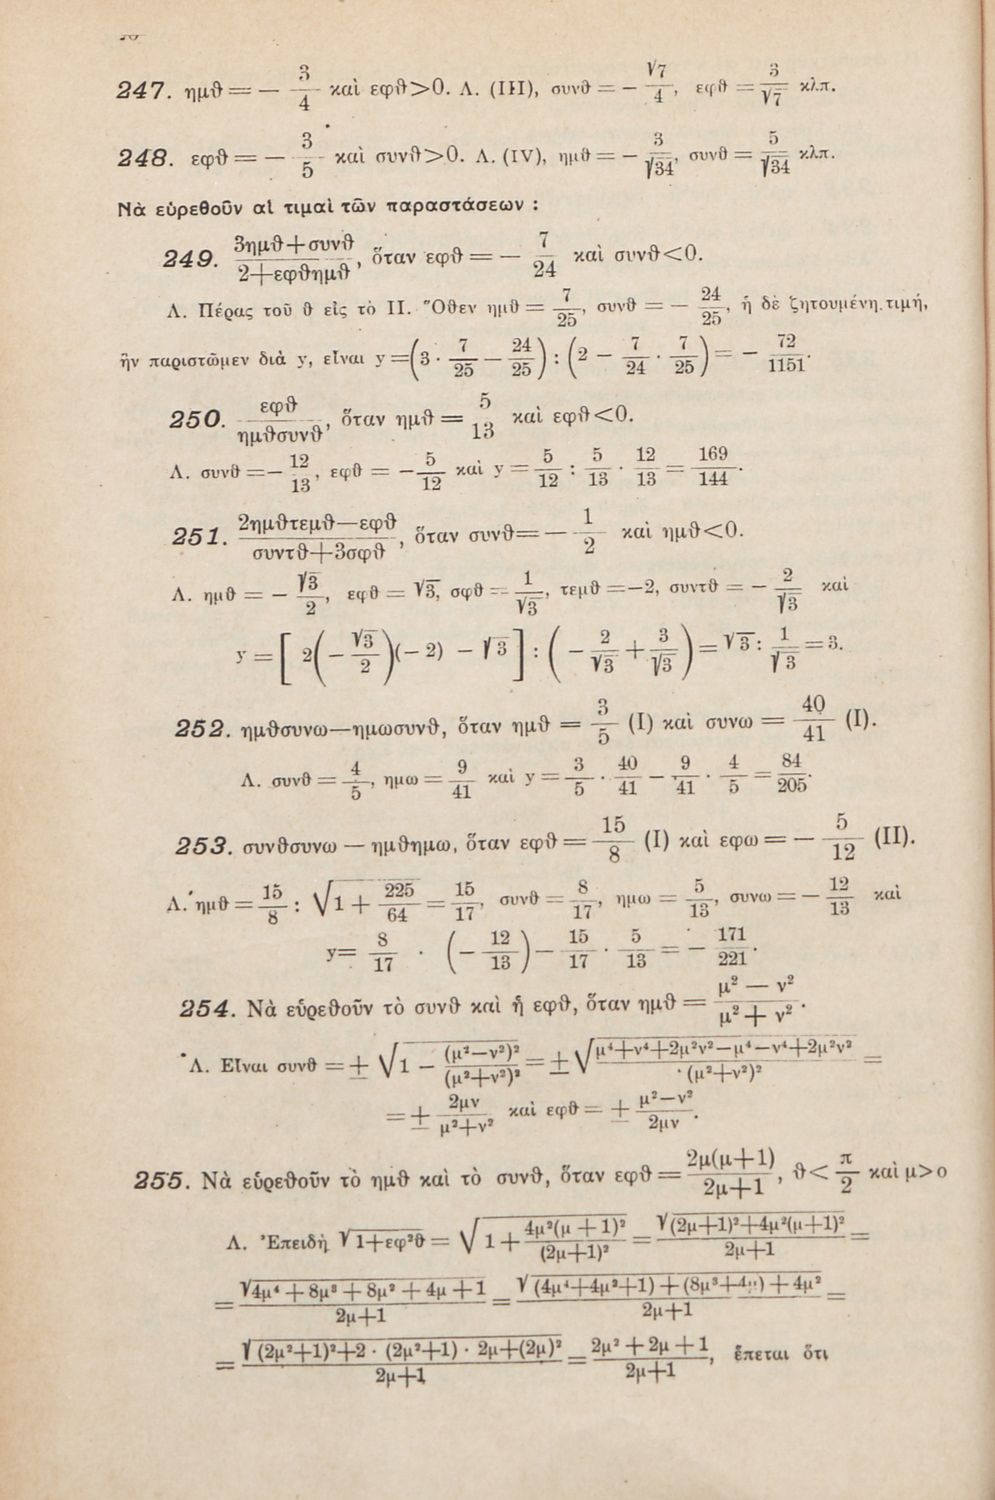 247. ημθ = − 3/4 καὶ εφθ>0. Λ. (III), συνθ = − √7/4, εφθ = 3/√7 κλπ.
248. εφθ = − 3/5 καὶ συνθ>0. Λ. (IV), ημθ = − 3/√34, συνθ = 5/√34 κλπ.
Νὰ εὑρεθοῦν αἱ τιμαὶ τῶν παραστάσεων :
249. (3ημθ+συνθ)/(2+εφθημθ), ὅταν εφθ = − 7/24 καὶ συνθ<0.
Λ. Πέρας τοῦ θ εἰς τὸ II. Ὅθεν ημθ = 7/25, συνθ = − 24/25, ἡ δὲ ζητουμένη τιμή,
ἣν παριστῶμεν διὰ y, εἶναι y =(3 · 7/25 − 24/25) : (2 − 7/24 · 7/25) = − 72/1151.
250. εφθ/(ημθσυνθ), ὅταν ημθ = 5/13 καὶ εφθ<0.
Λ. συνθ =− 12/13, εφθ = − 5/12 καὶ y = 5/12 : 5/13 · 12/13 = 169/144.
251. (2ημθτεμθ—εφθ)/(συντθ+3σφθ), ὅταν συνθ= − 1/2 καὶ ημθ<0.
Λ. ημθ = − √3/2, εφθ = √3, σφθ = 1/√3, τεμθ =−2, συντθ = − 2/√3 καὶ
y = [ 2(− √3/2)(−2) − √3 ] : ( − 2/√3 + 3/√3 ) = √3 : 1/√3 = 3.
252. ημθσυνω—ημωσυνθ, ὅταν ημθ = 3/5 (I) καὶ συνω = 40/41 (I).
Λ. συνθ = 4/5, ημω = 9/41 καὶ y = 3/5 · 40/41 − 9/41 · 4/5 = 84/205.
253. συνθσυνω — ημθημω, ὅταν εφθ = 15/8 (I) καὶ εφω = − 5/12 (II).
Λ. ημθ = 15/8 : √(1 + 225/64) = 15/17, συνθ = 8/17, ημω = 5/13, συνω = − 12/13 καὶ
y= 8/17 · (− 12/13) − 15/17 · 5/13 = − 171/221.
254. Νὰ εὑρεθοῦν τὸ συνθ καὶ ἡ εφθ, ὅταν ημθ = (μ² — ν²)/(μ² + ν²).
Λ. Εἶναι συνθ = ± √(1 − (μ²—ν²)²/(μ²+ν²)²) = ± √((μ⁴+ν⁴+2μ²ν²—μ⁴—ν⁴+2μ²ν²)/(μ²+ν²)²) =
= ± 2μν/(μ²+ν²) καὶ εφθ = ± (μ²—ν²)/2μν.
255. Νὰ εὑρεθοῦν τὸ ημθ καὶ τὸ συνθ, ὅταν εφθ = 2μ(μ+1)/(2μ+1), θ< π/2 καὶ μ>ο
Λ. Ἐπειδὴ √(1+εφ²θ) = √(1 + 4μ²(μ + 1)²/(2μ+1)²) = √((2μ+1)²+4μ²(μ+1)²)/(2μ+1) =
= √(4μ⁴ + 8μ³ + 8μ² + 4μ + 1)/(2μ+1) = √((4μ⁴+4μ²+1) + (8μ³+4μ) + 4μ²)/(2μ+1) =
= √((2μ²+1)²+2 · (2μ²+1) · 2μ+(2μ)²)/(2μ+1) = (2μ² + 2μ + 1)/(2μ+1), ἕπεται ὅτι